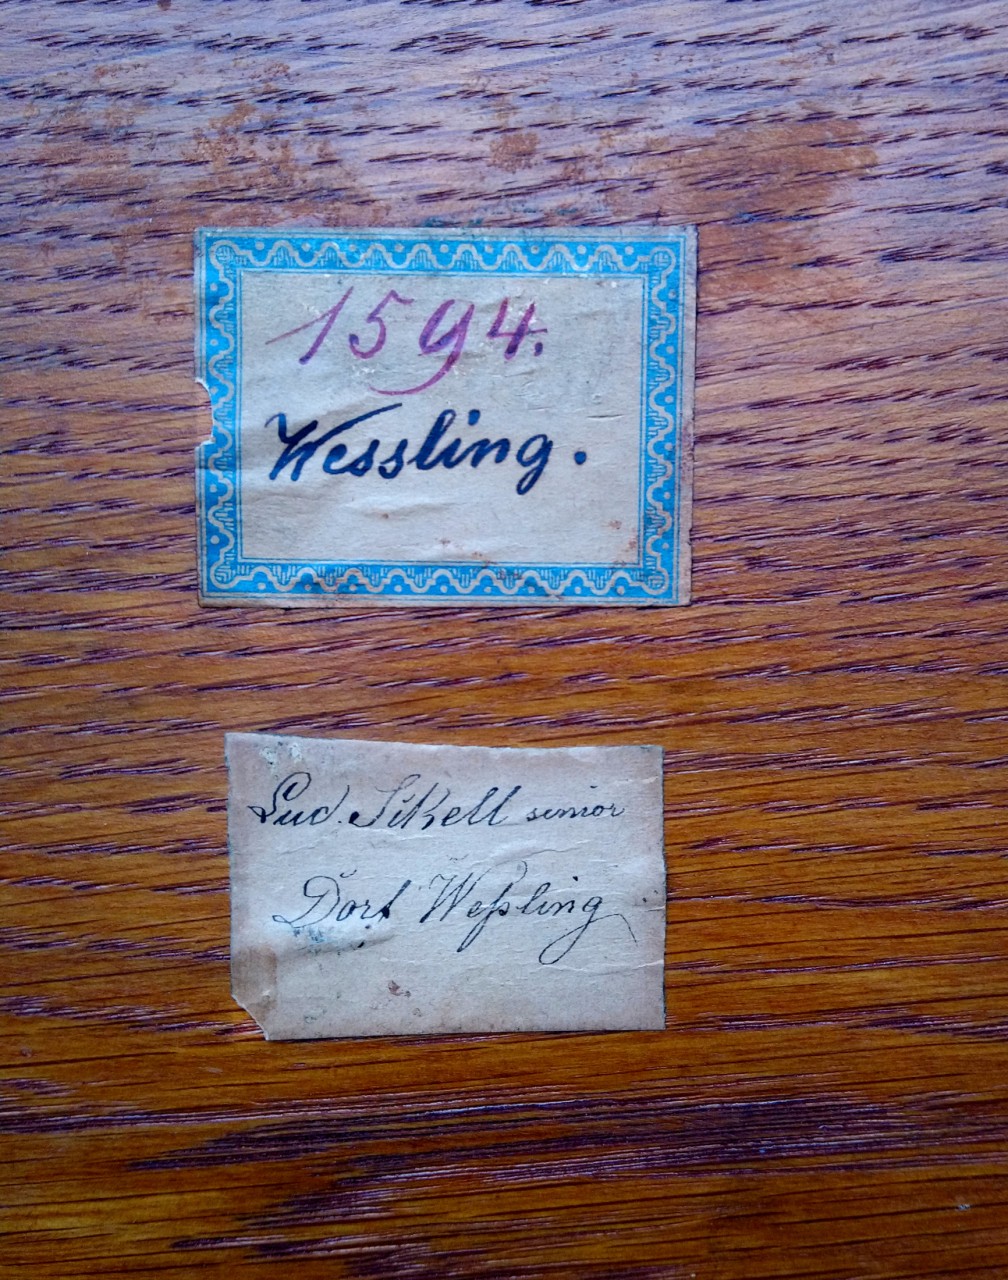 1594.
Wessling.
Lud. Sikell senior
Dorf Weßling